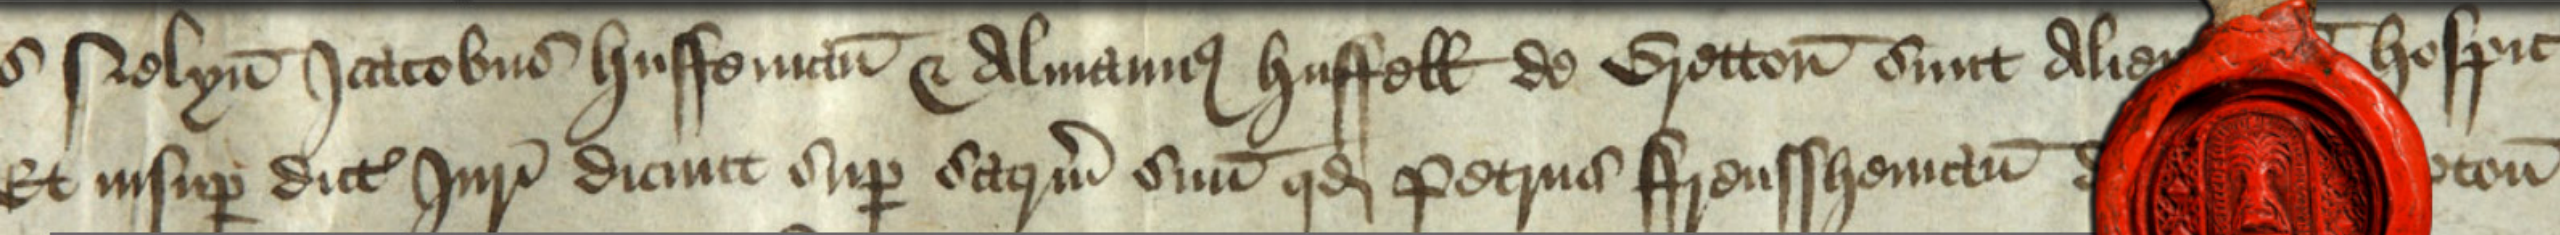 s Selyn̄ Jacobus huffeman̄ & Almanus huffell de Gretton̄ sunt Alien hospit
Et insup̱ dict' Jur̄ dicunt sup̱ sacr̄m suū qd Petrus ffrenssheman̄ d ton̄